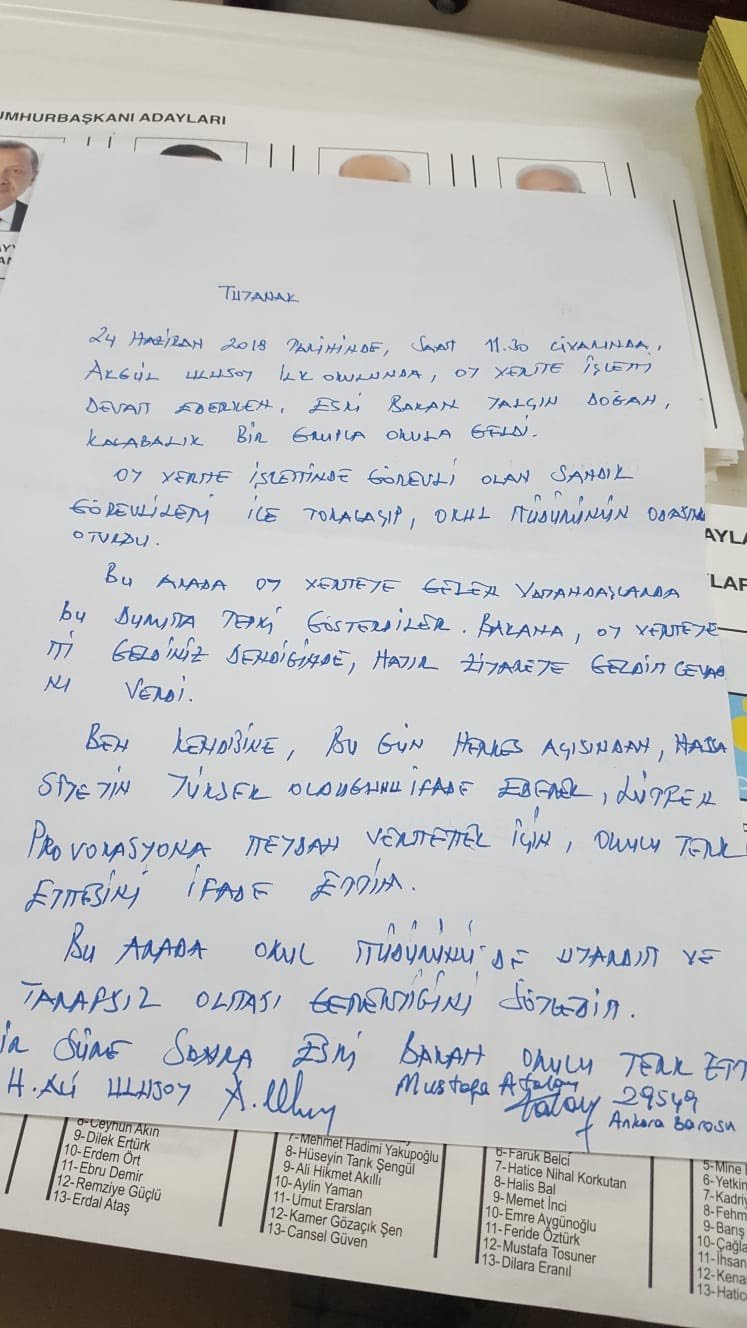 UMHURBAŞKANI ADAYLARI
TUTANAK
24 HAZİRAN 2018 TARİHİNDE, SAAT 11.30 CİVARINDA,
AKGÜL ULUSOY İLK OKULUNDA, OY VERME İŞLEMİ
DEVAM EDERKEN, ESKİ BAKAN YALÇIN DOĞAN,
KALABALIK BİR GRUPLA OKULA GELDİ.
OY VERME İŞLEMİNDE GÖREVLİ OLAN SANDIK
GÖREVLİLERİ İLE TOKALAŞIP, OKUL MÜDÜRÜNÜN ODASINA
OTURDU.
BU ARADA OY VERMEYE GELEN VATANDAŞLARDA
BU DURUMA TEPKİ GÖSTERDİLER. BAKANA, OY VERMEYE
Mİ GELDİNİZ DENDİĞİNDE, HATIR ZİYARETE GELDİM CEVABI
NI VERDİ.
BEN KENDİSİNE, BU GÜN HERKES AÇISINDAN, HASSA
SİYETİN YÜKSEK OLDUĞUNU İFADE EDEREK, LÜTFEN
PROVOKASYONA MEYDAN VERMEMEK İÇİN, OKULU TERK
ETMESİNİ İFADE ETTİM.
BU ARADA OKUL MÜDÜRÜNÜ DE UYARDIM VE
TARAFSIZ OLMASI GEREKTİĞİNİ SÖYLEDİM.
İR SÜRE SONRA ESKİ BAKAN OKULU TERK ETT
H. ALİ ULUSOY
Mustafa Atalay
Atalay 29549
Ankara Barosu
AYLA
LAR
8-Ceyhun Akın
9-Dilek Ertürk
10-Erdem Ört
11-Ebru Demir
12-Remziye Güçlü
13-Erdal Ataş
7-Mehmet Hadimi Yakupoğlu
8-Hüseyin Tarık Şengül
9-Ali Hikmet Akıllı
10-Aylin Yaman
11-Umut Erarslan
12-Kamer Gözaçık Şen
13-Cansel Güven
6-Faruk Belci
7-Hatice Nihal Korkutan
8-Halis Bal
9-Memet İnci
10-Emre Aygünoğlu
11-Feride Öztürk
12-Mustafa Tosuner
13-Dilara Eranıl
5-Mine
6-Yetkin
7-Kadriy
8-Fehm
9-Barış
10-Çağla
11-İhsan
12-Kena
13-Hatic